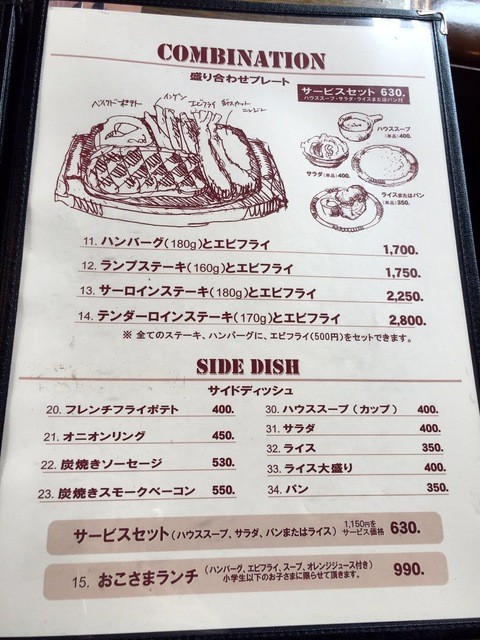 COMBINATION
盛り合わせプレート
サービスセット 630.
ハウススープ・サラダ・ライスまたはパン付
ベイクドポテト
インゲン
エビフライ
ニンジン
ハウススープ
(単品)400.
サラダ(単品)400.
ライスまたはパン
(単品)350.
11. ハンバーグ(180g)とエビフライ 1,700.
12. ランプステーキ(160g)とエビフライ 1,750.
13. サーロインステーキ(180g)とエビフライ 2,250.
14. テンダーロインステーキ(170g)とエビフライ 2,800.
※ 全てのステーキ、ハンバーグに、エビフライ(500円)をセットできます。
SIDE DISH
サイドディッシュ
20. フレンチフライポテト 400.
21. オニオンリング 450.
22. 炭焼きソーセージ 530.
23. 炭焼きスモークベーコン 550.
30. ハウススープ(カップ) 400.
31. サラダ 400.
32. ライス 350.
33. ライス大盛り 400.
34. パン 350.
サービスセット(ハウススープ、サラダ、パンまたはライス) 1,150円をサービス価格 630.
15. おこさまランチ (ハンバーグ、エビフライ、スープ、オレンジジュース付き) 990.
小学生以下のお子さまに限らせて頂きます。